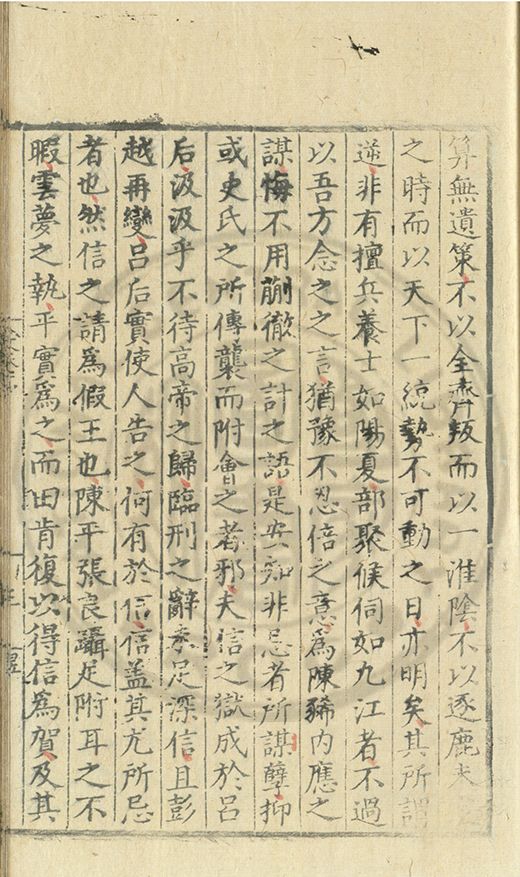 算無遺策不以全齊叛而以一淮陰不以逐鹿未
之時而以天下一統勢不可動之日亦明矣其所謂
逆非有擅兵養士如陽夏部聚候伺如九江者不過
以吾方念之之言猶豫不忍倍之意為陳豨内應之
謀悔不用蒯徹之計之語是安知非忌者所謀孽抑
或史氏之所傳襲而附會之者邪夫信之獄成於呂
后汲汲乎不待高帝之歸臨刑之辭柰足深信且彭
越再變呂后實使人告之何有於信信盖其尤所忌
者也然信之請爲假王也陳平張良躡足附耳之不
暇雲夢之執平實爲之而田肯復以得信爲賀及其